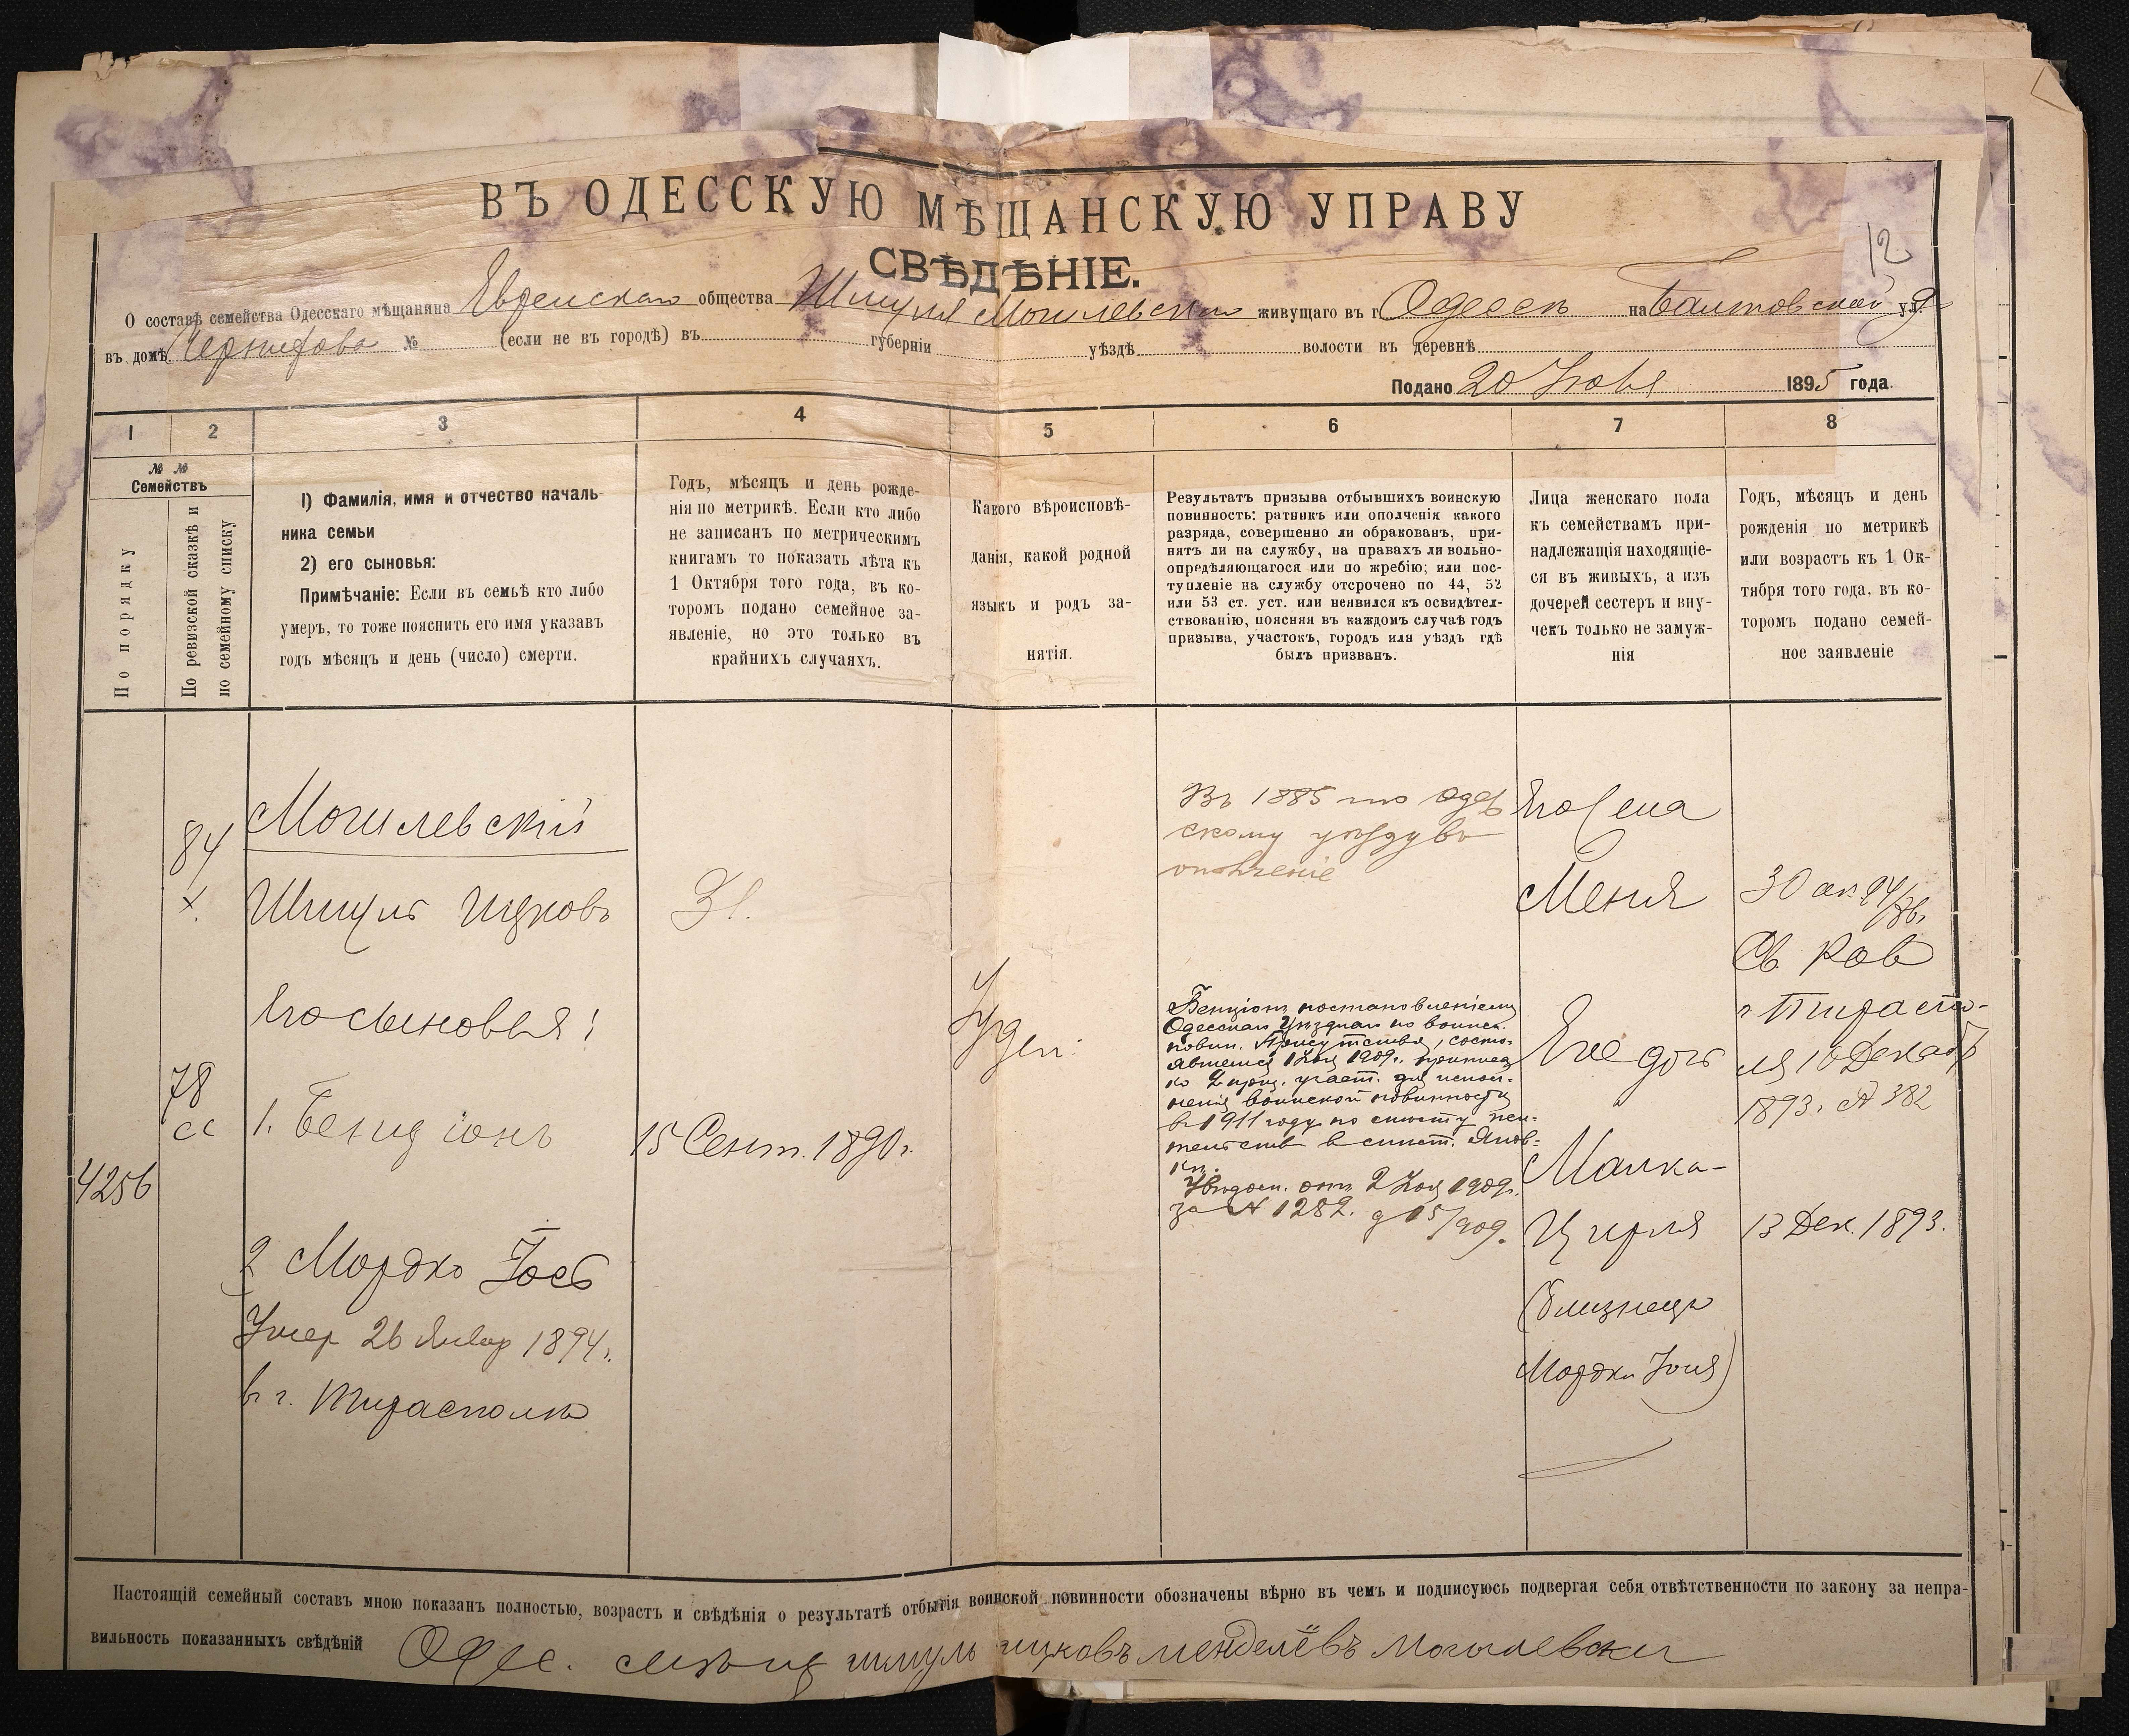 12
ВЪ ОДЕССКУЮ МѢЩАНСКУЮ УПРАВУ
СВѢДѢНІЕ.
О составѣ семейства Одесскаго мѣщанина Еврейскаго общества Шмуля Могилевскаго живущаго въ г. Одессѣ на Балтовской ул.
въ домѣ № (если не въ городѣ) въ губерніи уѣздѣ волости въ деревнѣ
Подано 20 1895 года.
1 2 3 4 5 6 7 8
№ №
Семействъ
По порядку
По ревизской сказкѣ и
по семейному списку
1) Фамилія, имя и отчество началь-
ника семьи
2) его сыновья:
Примѣчаніе: Если въ семьѣ кто либо
умеръ, то тоже пояснить его имя указавъ
годъ мѣсяцъ и день (число) смерти.
Годъ, мѣсяцъ и день рожде-
нія по метрикѣ. Если кто либо
не записанъ по метрическимъ
книгамъ то показать лѣта къ
1 Октября того года, въ ко-
торомъ подано семейное за-
явленіе, но это только въ
крайнихъ случаяхъ.
Какого вѣроисповѣ-
данія, какой родной
языкъ и родъ за-
нятія.
Результатъ призыва отбывшихъ воинскую
повинность: ратникъ или ополченія какого
разряда, совершенно ли обракованъ, при-
нятъ ли на службу, на правахъ ли вольно-
опредѣляющагося или по жребію; или пос-
тупленіе на службу отсрочено по 44, 52
или 53 ст. уст. или неявился къ освидѣтел-
ствованію, поясняя въ каждомъ случаѣ годъ
призыва, участокъ, городъ или уѣздъ гдѣ
былъ призванъ.
Лица женскаго пола
къ семействамъ при-
надлежащія находящіе-
ся въ живыхъ, а изъ
дочерей сестеръ и вну-
чекъ только не замуж-
нія
Годъ, мѣсяцъ и день
рожденія по метрикѣ
или возрастъ къ 1 Ок-
тября того года, въ ко-
торомъ подано семей-
ное заявленіе
4256
84
х.
78
сс
Могилевскій
Шмуль Ицковъ
Его сыновья:
1. Бенціонъ
2 Мордко Іось
Умер 26 Январ 1894 г.
в г. Тирасполѣ
31.
15 Сент. 1890 г.
Іудей
Въ 1885 по Одес
скому уѣзду въ
ополченіе
Бенціонъ постановленіемъ
Одесскаго Уѣзднаго по воинск.
повин. Присутствія, состо-
явшемся 1 1909 г.
ко 2 приз. участ. для испол-
ненія воинской повинности
в 1911 году по
от 2 1909 г.
за № 1282. 15/909.
Его жена
Меня
Его дочь
Малка-
Цирля
(близнецъ
Мордки Іося)
30
Св Рав
г Тираспо-
ля 10 Декабр
1893 г № 382
13 Дек. 1893.
Настоящій семейный составъ мною показанъ полностью, возрастъ и свѣдѣнія о результатѣ отбытія воинской повинности обозначены вѣрно въ чемъ и подписуюсь подвергая себя отвѣтственности по закону за непра-
вильность показанныхъ свѣдѣній Одес. мѣщ шмуль ицковъ менделёвъ могилевски